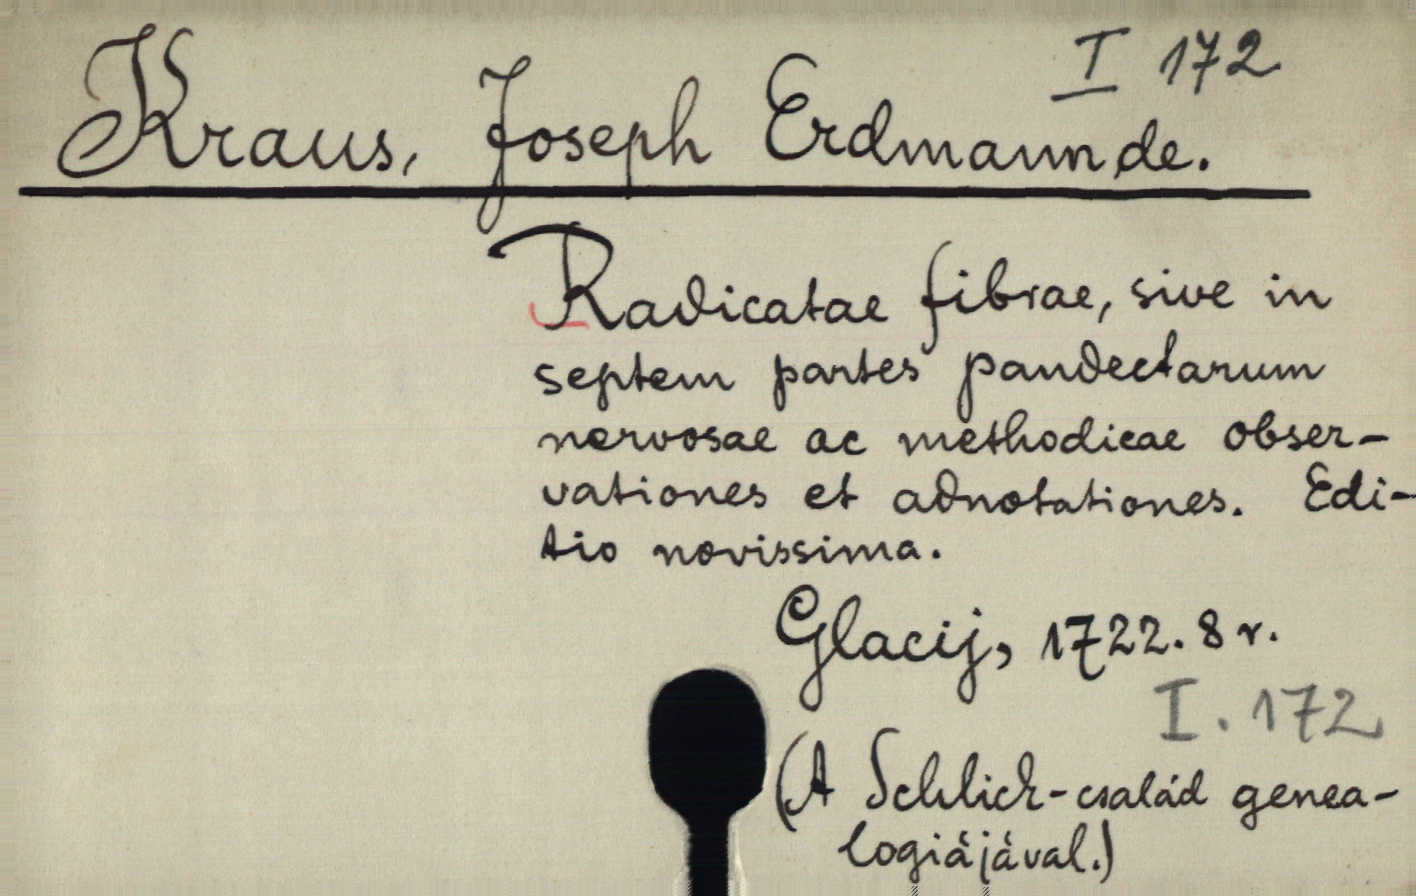 I 172
Kraus, Joseph Erdmann de.
Radicatae fibrae, sive in
septem partes pandectarum
nervosae ac methodicae obser-
vationes et adnotationes. Edi-
tio novissima.
Glacij, 1722. 8 r.
I. 172
(A Schlick-család genea-
logiájával.)